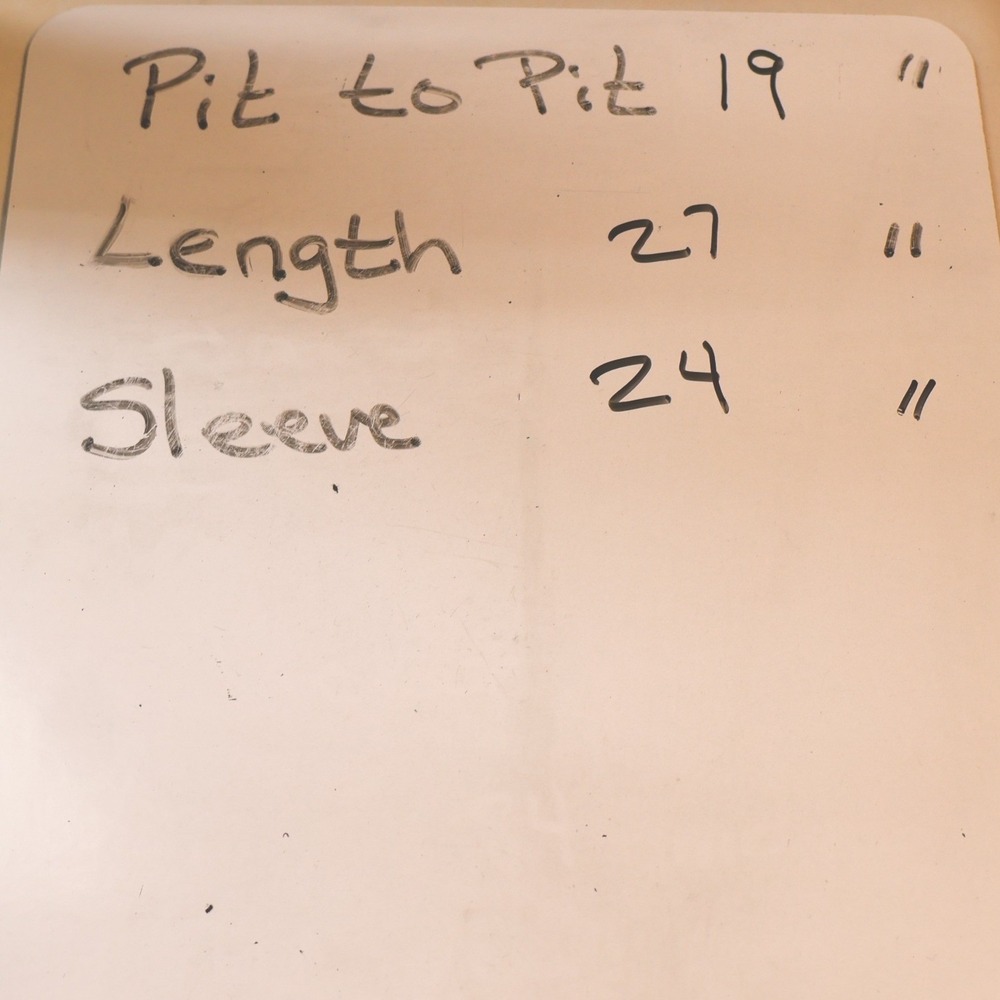 Pit to Pit 19 "
Length 27 "
Sleeve 24 "